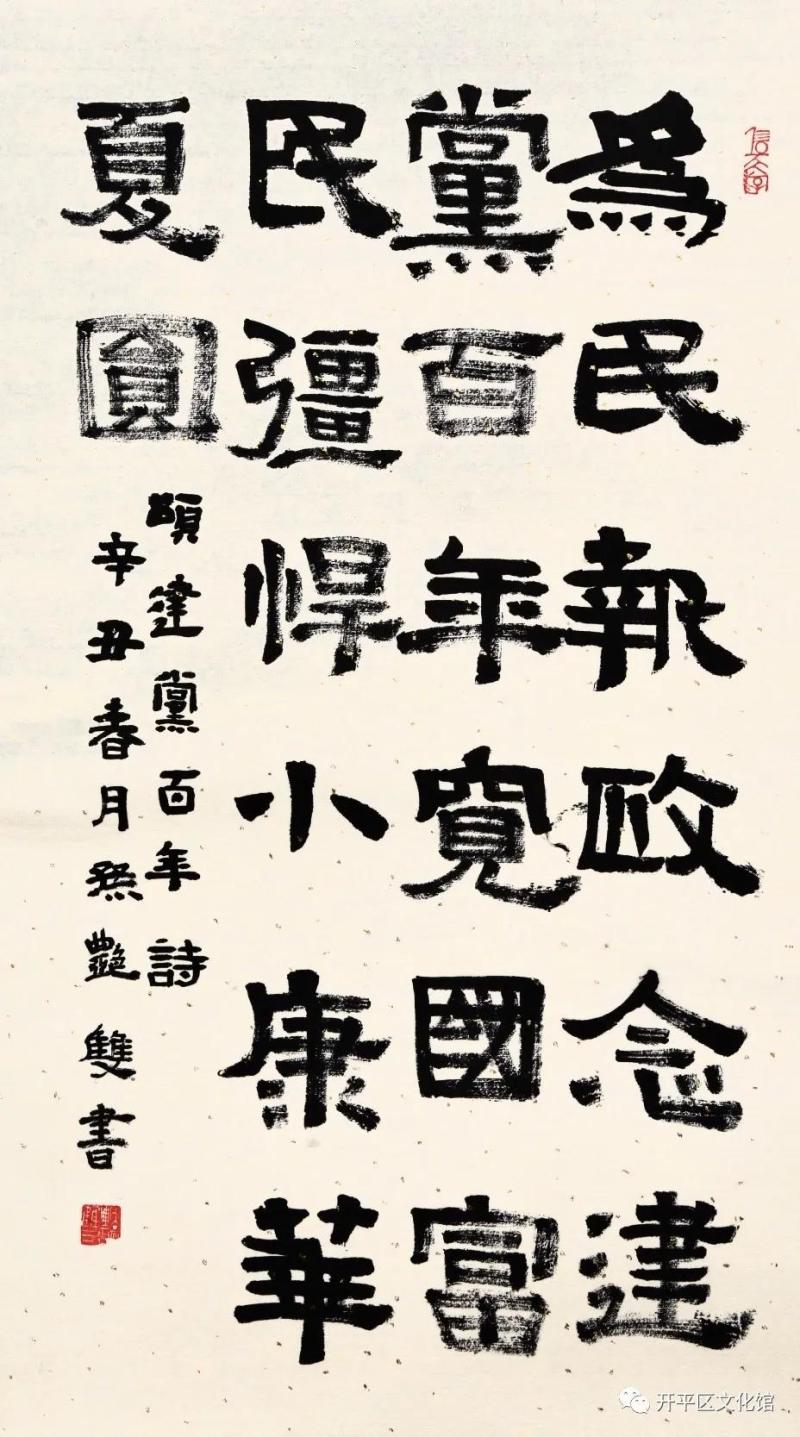 為民報政念建
黨百年寬國富
民彊悍小康華
夏圓
頌建黨百年詩
辛丑春月 艷雙書
开平区文化馆